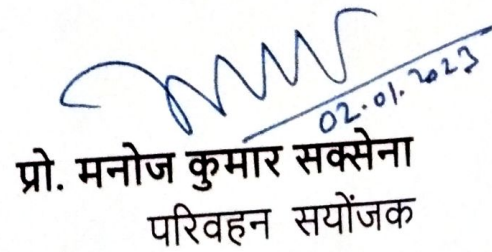 02.01.2023
प्रो. मनोज कुमार सक्सेना
परिवहन सयोंजक